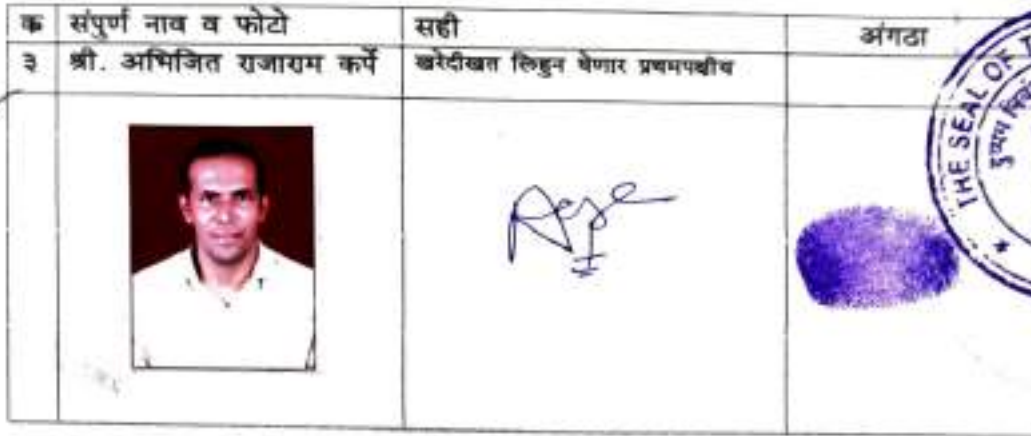 क्र संपुर्ण नाव व फोटो सही अंगठा
३ श्री. अभिजित राजाराम कर्पे खरेदीखत लिहुन घेणार प्रथमपक्षीय
THE SEAL OF